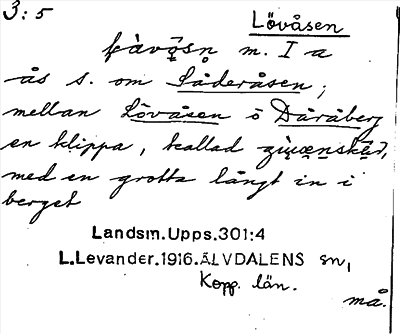 3:5
Lövåsen
m. I a
ås s. om Såderåsen,
mellan Lövåsen o Dåråberg
en klippa, kallad
med en grotta långt in i
berget
Landsm.Upps.301:4
L.Levander.1916.ÄLVDALENS sn,
Kopp. län.
må.